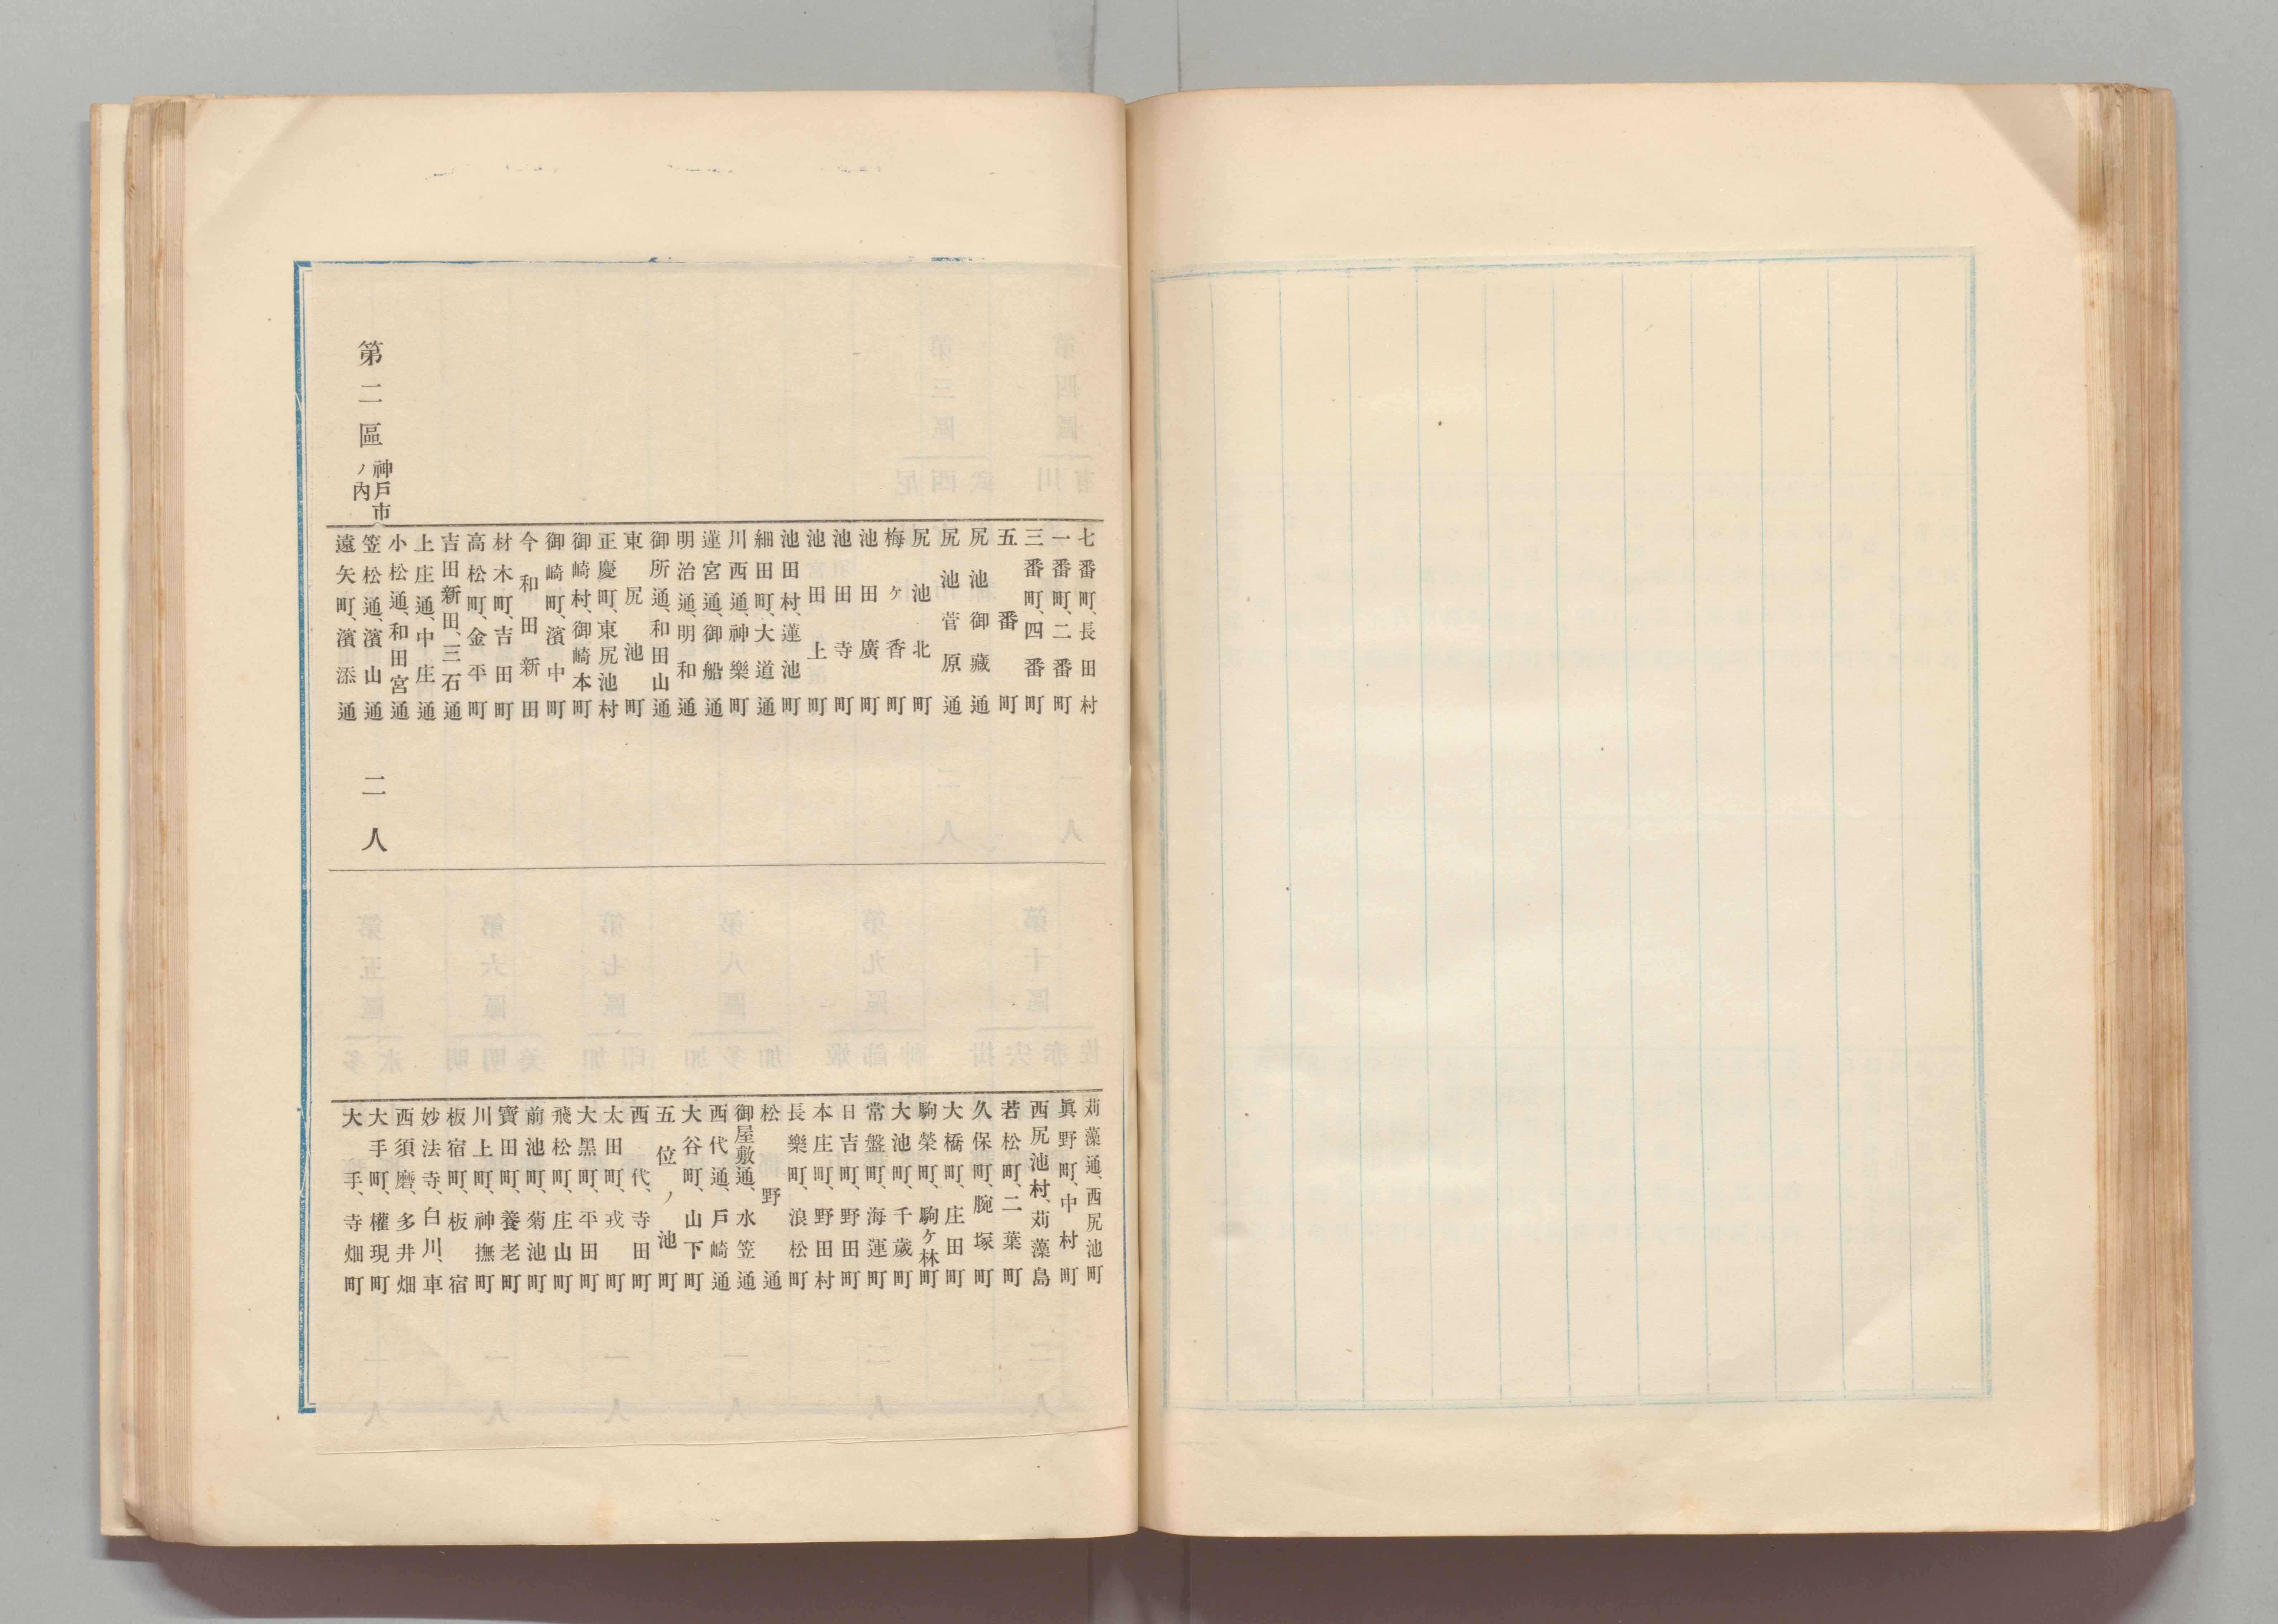 七番町、長田村
一番町、二番町
三番町、四番町
五番町
尻池御藏通
尻池菅原通
尻池北町
梅ヶ香町
池田廣町
池田寺町
池田上町
池田村、蓮池町
細田町、大道通
川西通、神樂町
蓮宮通、御船通
明治通、明和通
御所通、和田山通
東尻池町
正慶町、東尻池村
御崎村、御崎本町
御崎町、濱中町
今和田新田
材木町、吉田町
高松町、金平町
吉田新田、三石通
上庄通、中庄通
小松通、和田宮通
第二區神戶市ノ內
笠松通、濱山通
二人
遠矢町、濱添通
苅藻通、西尻池町
眞野町、中村町
西尻池村、苅藻島
若松町、二葉町
久保町、腕塚町
大橋町、庄田町
駒榮町、駒ヶ林町
大池町、千歲町
常盤町、海運町
日吉町、野田町
本庄町、野田村
長樂町、浪松町
松野通
御屋敷通、水笠通
西代通、戶崎通
大谷町、山下町
五位ノ池町
西代、寺田町
太田町、戎町
大黑町、平田町
飛松町、庄山町
前池町、菊池町
寶田町、養老町
川上町、神撫町
板宿町、板宿
妙法寺、白川、車
西須磨、多井畑
大手町、權現町
大手、寺畑町